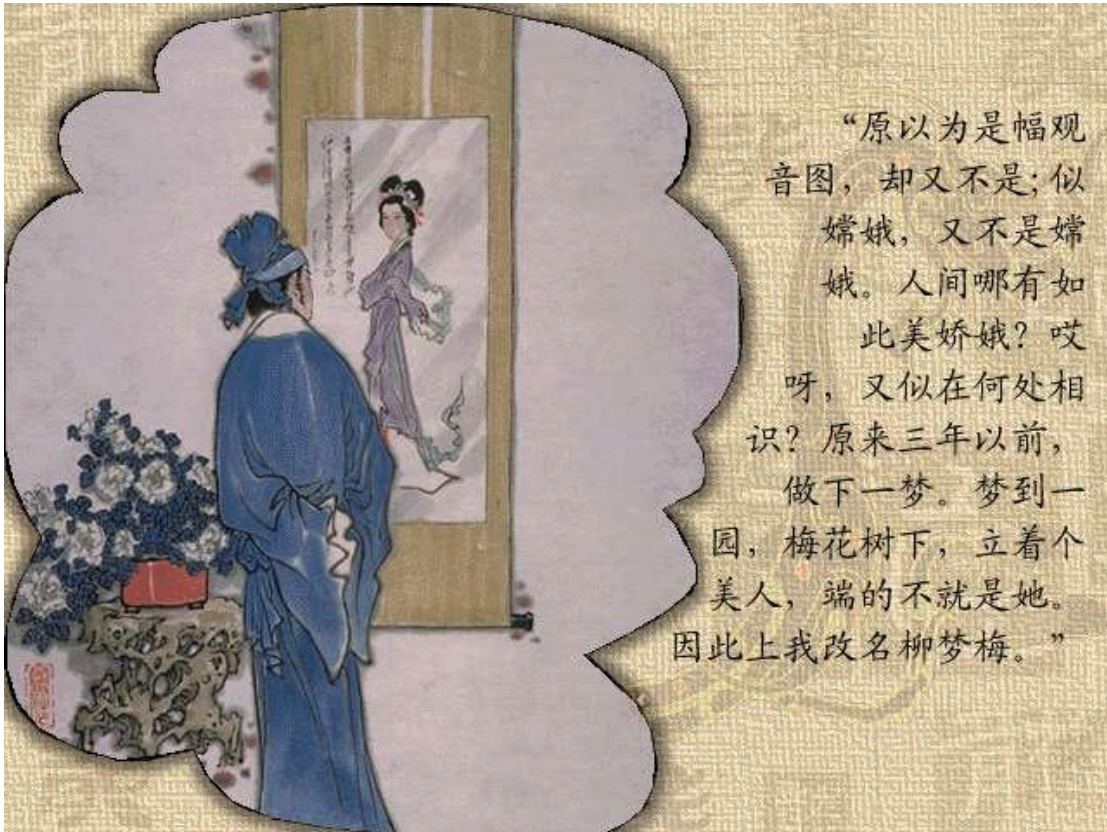 “原以为是幅观
音图，却又不是；似
嫦娥，又不是嫦
娥。人间哪有如
此美娇娥？哎
呀，又似在何处相
识？原来三年以前，
做下一梦。梦到一
园，梅花树下，立着个
美人，端的不就是她。
因此上我改名柳梦梅。”